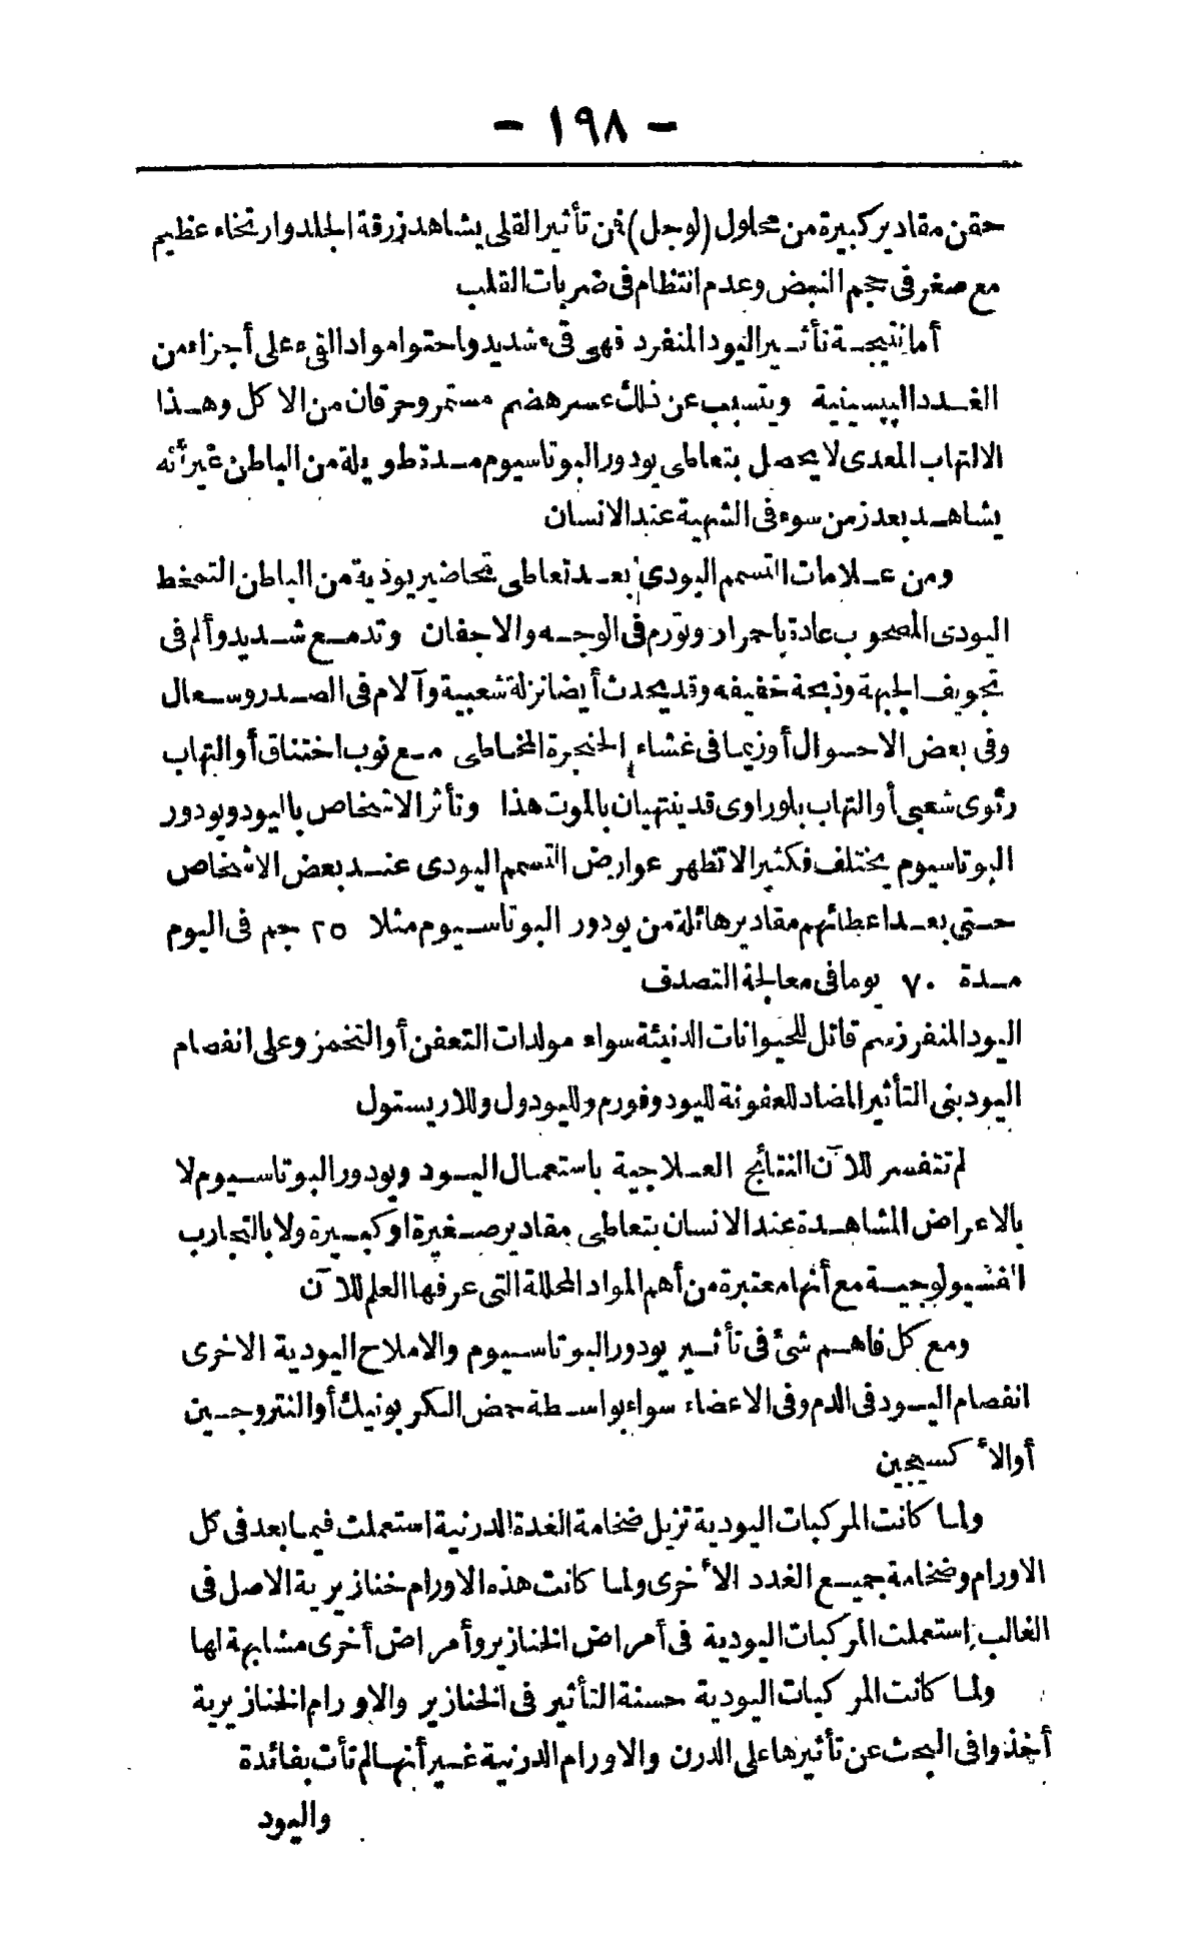 - ١٩٨ -
حقن مقادير كبيرة من محلول (لوجل) فن تأثير القلى يشاهد زرقة الجلد وارتخاء عظيم
مع صغر فى حجم النبض وعدم انتظام فى ضربات القلب
أما نتيجة تأثير اليود المنفرد فهى قىء شديد واحتوا مواد القىء على أجزاء من
الغدد الپپسينية ويتسبب عن ذلك عسر هضم مستمر وحرقان من الاكل وهذا
الالتهاب المعدى لا يحصل بتعاطى يودور البوتاسيوم مدة طويلة من الباطن غير أنه
يشاهد بعد زمن سوء فى الشهية عند الانسان
ومن علامات التسمم اليودى بعد تعاطى تحاضير يوذية من الباطن التمخط
اليودى المصحوب عادة باحمرار وتورم فى الوجه والاجفان وتدمع شديد وألم فى
تجويف الجبهة وذبحة خفيفه وقد يحدث أيضا نزلة شعبية وآلام فى الصدر وسعال
وفى بعض الاحوال أوزيما فى غشاء الحنجرة المخاطى مع نوب اختناق أو التهاب
رئوى شعبى أو التهاب بلوراوى قد ينتهيان بالموت هذا وتأثر الاشخاص باليود ويودور
البوتاسيوم يختلف فكثيرا لا تظهر عوارض التسمم اليودى عند بعض الاشخاص
حتى بعد اعطائهم مقادير هائلة من يودور البوتاسيوم مثلا ٢٥ جم فى اليوم
مدة ٧٠ يوما فى معالجة التصدف
اليود المنفرد سم قاتل للحيوانات الدنيئة سواء مولدات التعفن أو التخمر وعلى انفصام
اليود بنى التأثير المضاد للعفونة لليود وفورم ولليودول وللاريستول
لم تتفسر للآن النتائج العلاجية باستعمال اليود ويودور البوتاسيوم لا
بالاعراض المشاهدة عند الانسان بتعاطى مقادير صغيرة او كبيرة ولا بالتجارب
الفسيولوجية مع أنها معتبرة من أهم المواد المحللة التى عرفها العلم للآن
ومع كل فاهم شئ فى تأثير يودور البوتاسيوم والاملاح اليودية الاخرى
انفصام اليود فى الدم وفى الاعضاء سواء بواسطة حمض الكربونيك أو النتروجين
أو الأكسيجين
ولما كانت المركبات اليودية تزيل ضخامة الغدة الدرنية استعملت فيما بعد فى كل
الاورام وضخامة جميع الغدد الأخرى ولما كانت هذه الاورام خنازيرية الاصل فى
الغالب استعملت المركبات اليودية فى أمراض الخنازير وأمراض أخرى مشابهة لها
ولما كانت المركبات اليودية حسنة التأثير فى الخنازير والاورام الخنازيرية
أخذوا فى البحث عن تأثيرها على الدرن والاورام الدرنية غير أنها لم تأت بفائدة
واليود